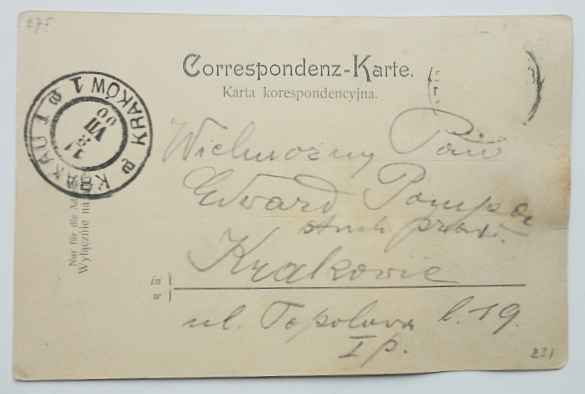 275
Correspondenz-Karte.
Karta korespondencyjna.
KRAKAU 1 KRAKÓW 1
VII
00
Wielmożny Pan
Edward Pompa
stud. praw.
in Krakowie
w
ul. Topolowa l. 19.
I p.
Nur für die Ad
Wyłącznie na
231